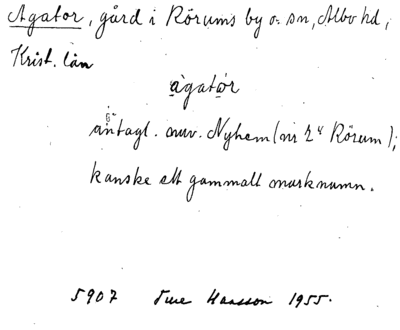 Agator, gård i Rörums by o. sn, Albo hd,
Krist. län
àgatór
antagl. nuv. Nyhem (nr 2⁴ Rörum);
kanske ett gammalt marknamn.
5907 Ture Hansson 1955.